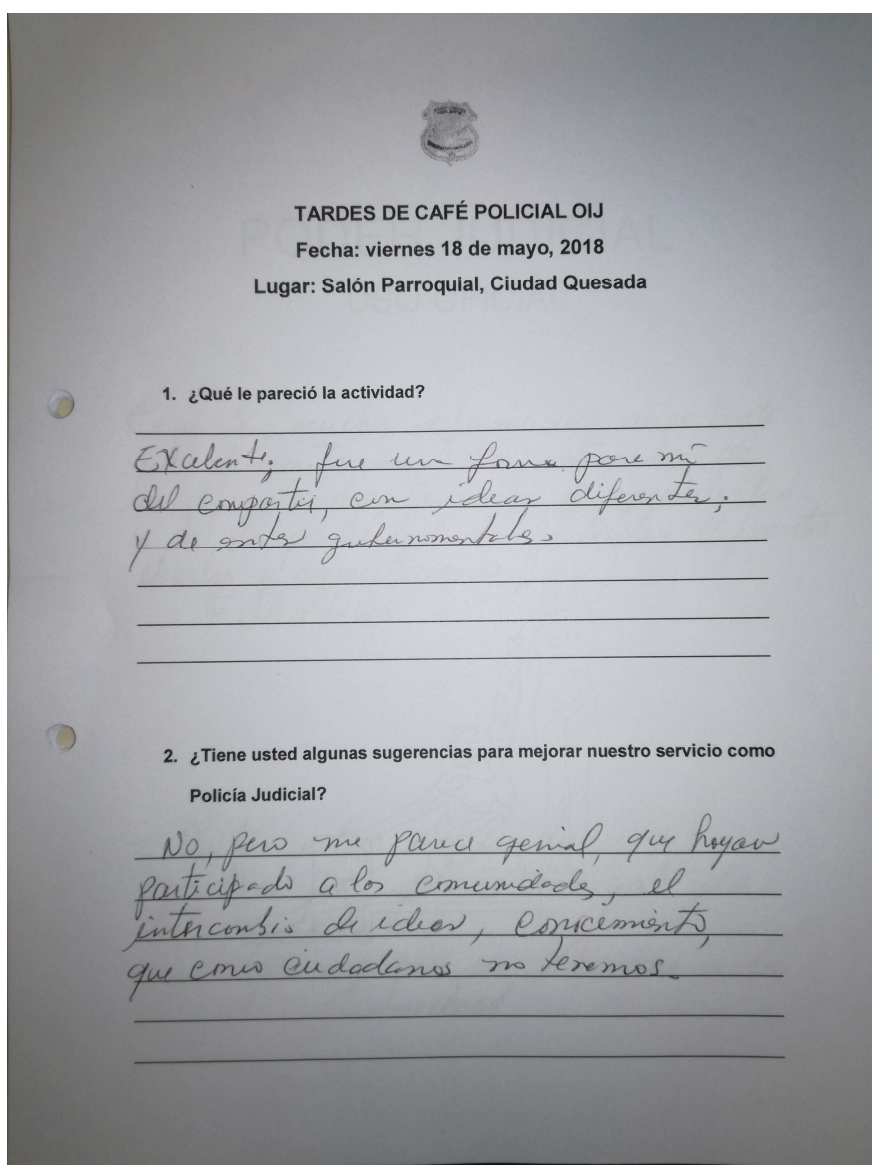 TARDES DE CAFÉ POLICIAL OIJ
Fecha: viernes 18 de mayo, 2018
Lugar: Salón Parroquial, Ciudad Quesada
1. ¿Qué le pareció la actividad?
Excelente, fue una forma para mí
del compartir, con ideas diferentes,
y de entes gubernamentales.
2. ¿Tiene usted algunas sugerencias para mejorar nuestro servicio como
Policía Judicial?
No, pero me parece genial, que hayan
participado a los comunidades, el
intercambio de ideas, conocimiento,
que como ciudadanos no tenemos.